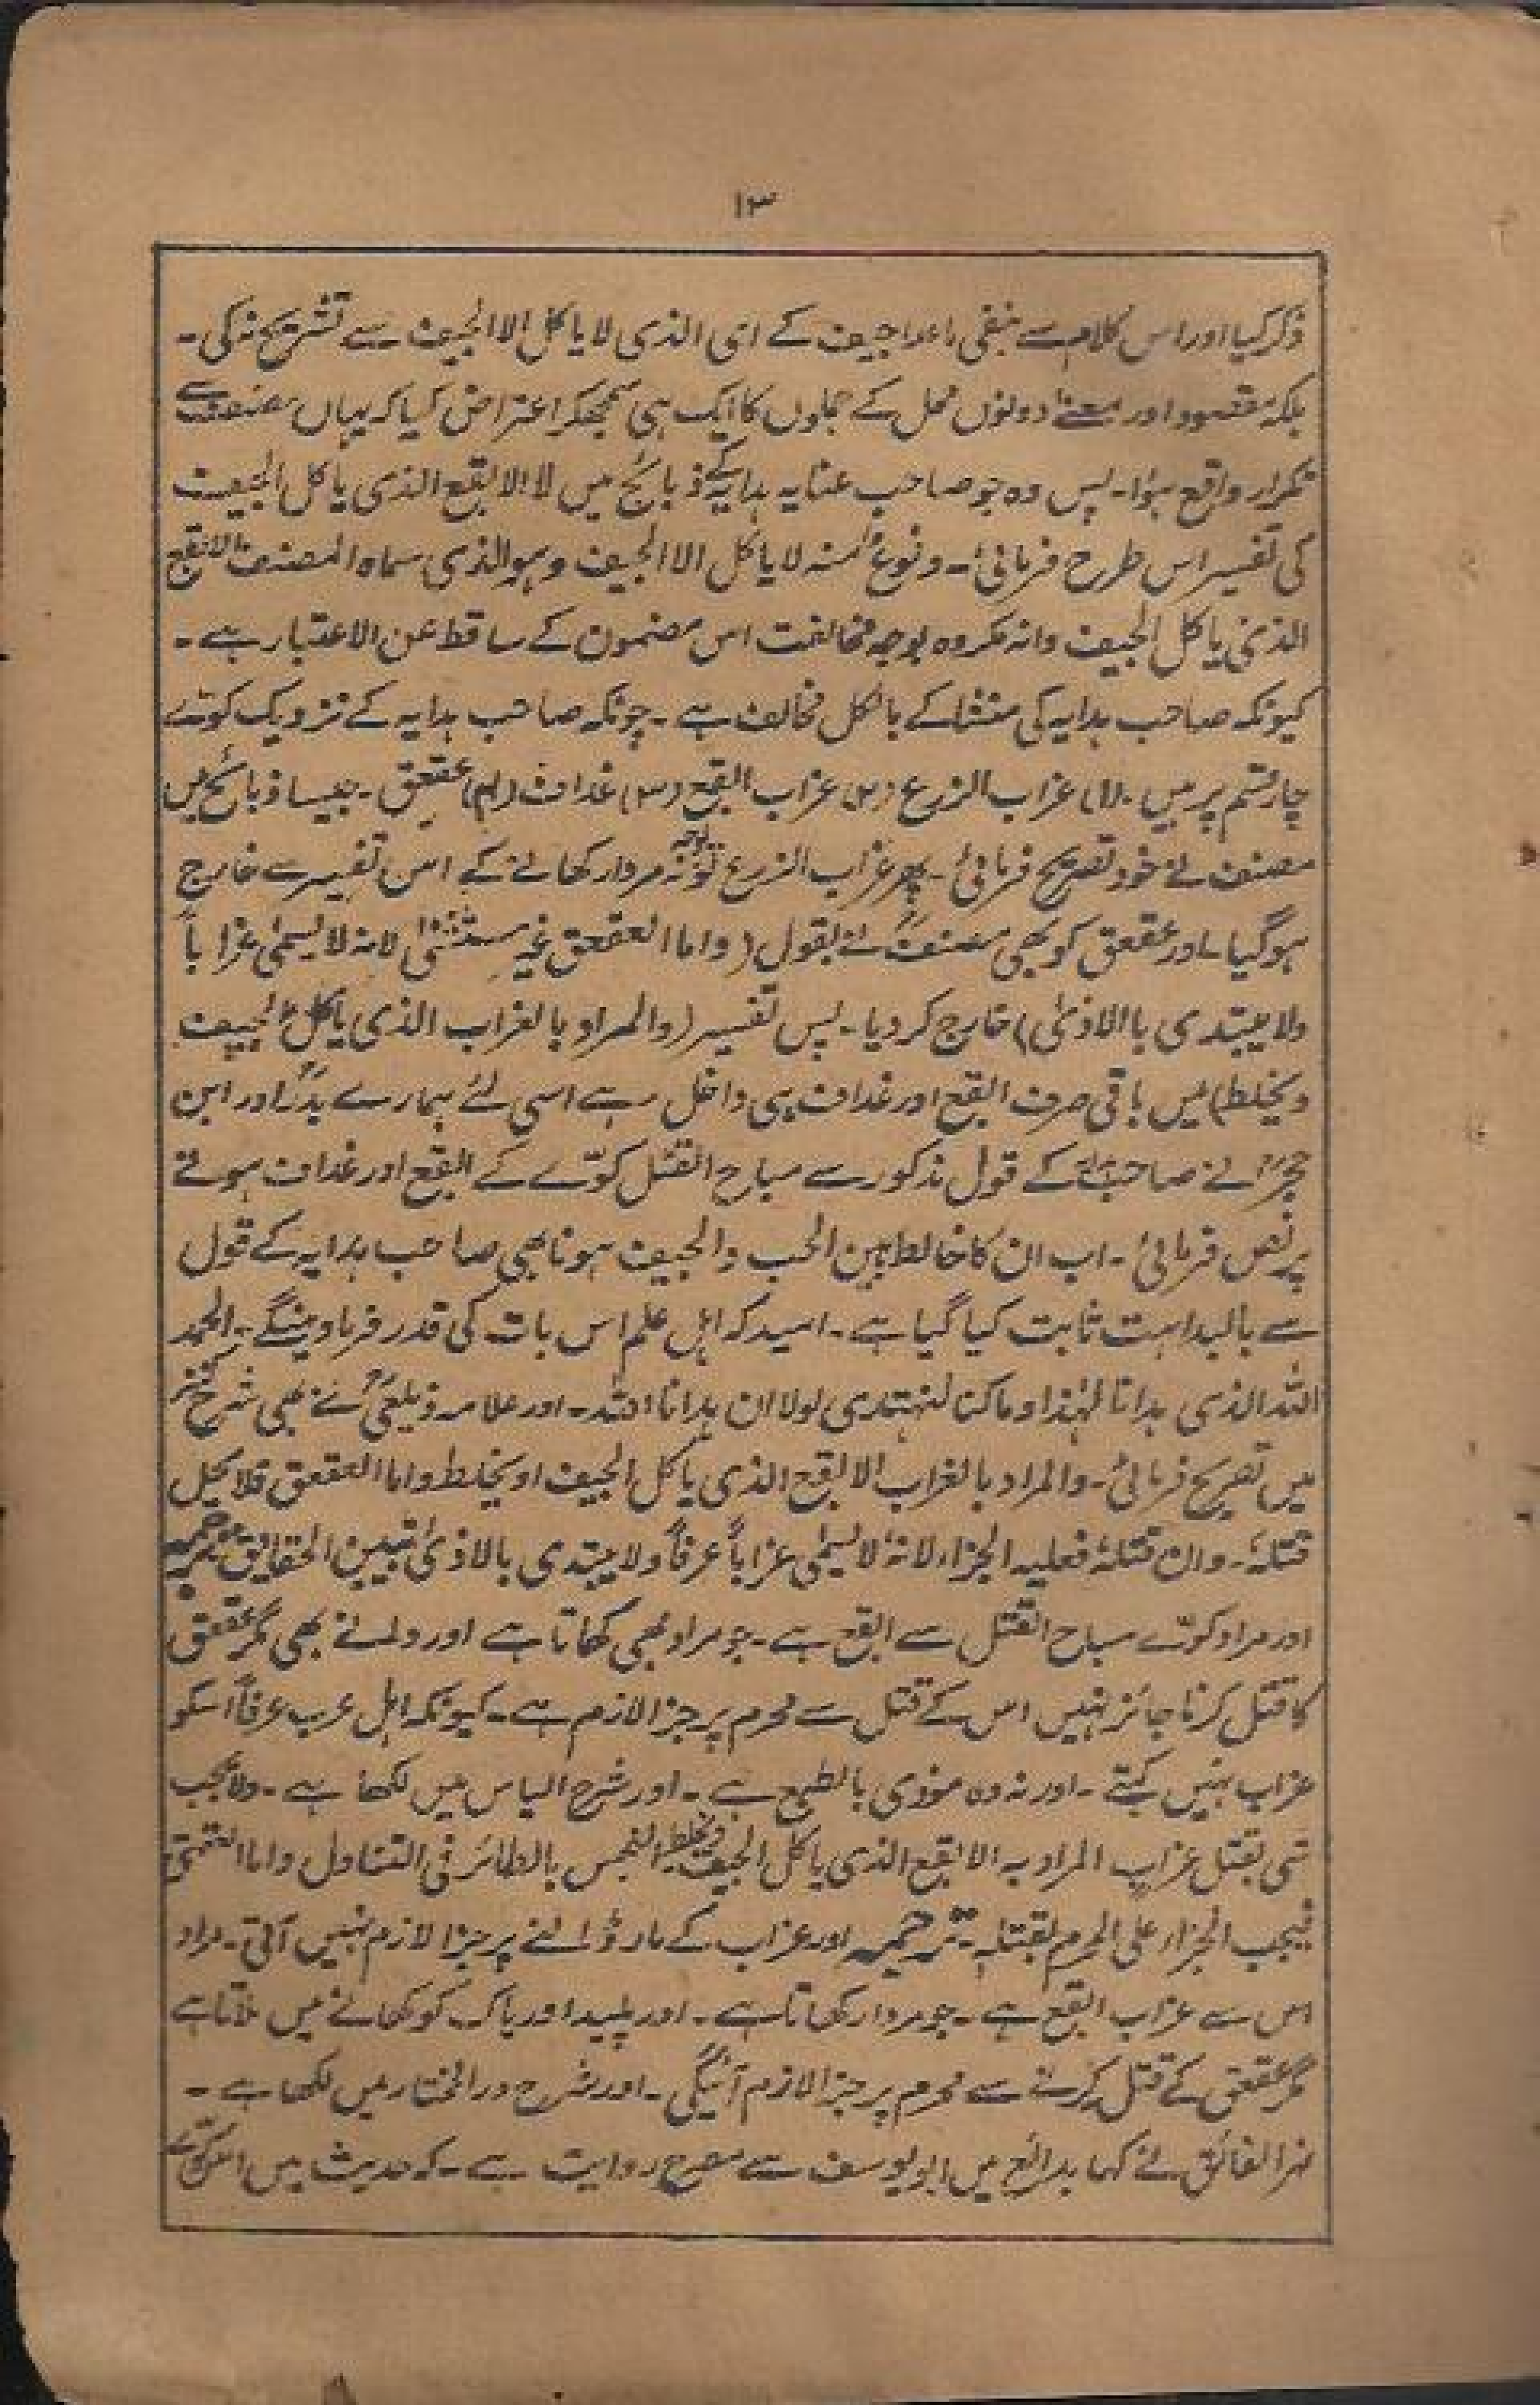 ۱۳
ذکر کیا اور اس کلام سے بنفی ماعدا جیف کے ای الذی لا یاکل الا الجیف سے تشریح نہ کی۔
بلکہ مقصود اور معنے دونوں محل کے جملوں کا ایک ہی سمجھکر اعتراض کیا کہ یہاں مصنف سے
تکرار واقع ہوا۔ پس وہ جو صاحب عنایہ ہدایہ کے ذبائح میں لا الابقع الذی یاکل الجیف
کی تفسیر اس طرح فرمائی۔ ونوع منہ لا یاکل الا الجیف وہو الذی سماہ المصنف الابقع
الذی یاکل الجیف وانہ مکروہ بوجہ مخالفت اس مضمون کے ساقط عن الاعتبار ہے۔
کیونکہ صاحب ہدایہ کی منشا کے بالکل مخالف ہے۔ چونکہ صاحب ہدایہ کے نزدیک کوّے
چار قسم پر ہیں۔ (۱) غراب الزرع (۲) غراب القع (۳) غداف (۴) عقعق۔ جیسا ذبائح میں
مصنف نے خود تصریح فرمائی۔ پھر غراب الزرع تو بوجہ نہ مردار کھانے کے اس تفسیر سے خارج
ہوگیا۔ اور عقعق کو بھی مصنفؒ نے بقول (واما العقعق غیر مستثنیٰ لانہ لا یسمیٰ غراباً
ولا یبتدی باالاذیٰ) خارج کردیا۔ پس تفسیر (والمراد بالغراب الذی یاکل الجیف
ویخلط) میں باقی صرف القع اور غداف ہی داخل رہے اسی لئے ہمارے بدرؒ اور ابن
حجرؒ نے صاحب کے قول مذکور سے مباح القتل کوّے کے القع اور غداف ہونے
پر نص فرمائی۔ اب ان کا خالط بین الحب والجیف ہونا بھی صاحب ہدایہ کے قول
سے بالبداہت ثابت کیا گیا ہے۔ امید کہ اہل علم اس بات کی قدر فرماوینگے۔ الحمد
للہ الذی ہدانا لہٰذا وماکنا لنہتدی لولا ان ہدانا اللہ۔ اور علامہ زیلعیؒ نے بھی شرح کنز
میں تصریح فرمائی۔ والمراد بالغراب الابقع الذی یاکل الجیف او یخلط واما العقعق فلا یحل
قتلہٗ۔ وان قتلہٗ فعلیہ الجزاء لانہٗ لا یسمٰی غراباً عرفاً ولا یبتدی بالاذیٰ تبیین الحقایق ترجمہ
اور مراد کوّے مباح القتل سے القع ہے۔ جو مراد بھی کھاتا ہے اور دانے بھی مگر عقعق
کا قتل کرنا جائز نہیں اس کے قتل سے محرم پر جزا لازم ہے۔ کیونکہ اہل عرب عرفاً اسکو
غراب نہیں کہتے۔ اور نہ وہ موذی بالطبع ہے۔ اور شرح الیاس میں لکھا ہے۔ ولا یجب
شی بقتل غراب المراد بہ الابقع الذی یاکل الجیف ویخلط النجس بالطائر فی التناول واما العقعق
فیجب الجزاء علی المحرم بقتلہ۔ ترجمہ اور غراب کے مار ڈالنے پر جزا لازم نہیں آتی۔ مراد
اس سے غراب القع ہے۔ جو مردار کھاتا ہے۔ اور پلید اور پاک کو کھانے میں ملاتا ہے
مگر عقعق کے قتل کرنے سے محرم پر جزا لازم آئیگی۔ اور شرح در المختار میں لکھا ہے۔
نہر الفائق نے کہا بدائع میں ابو یوسف سے مصرح روایت ہے۔ کہ حدیث میں اس کوّے